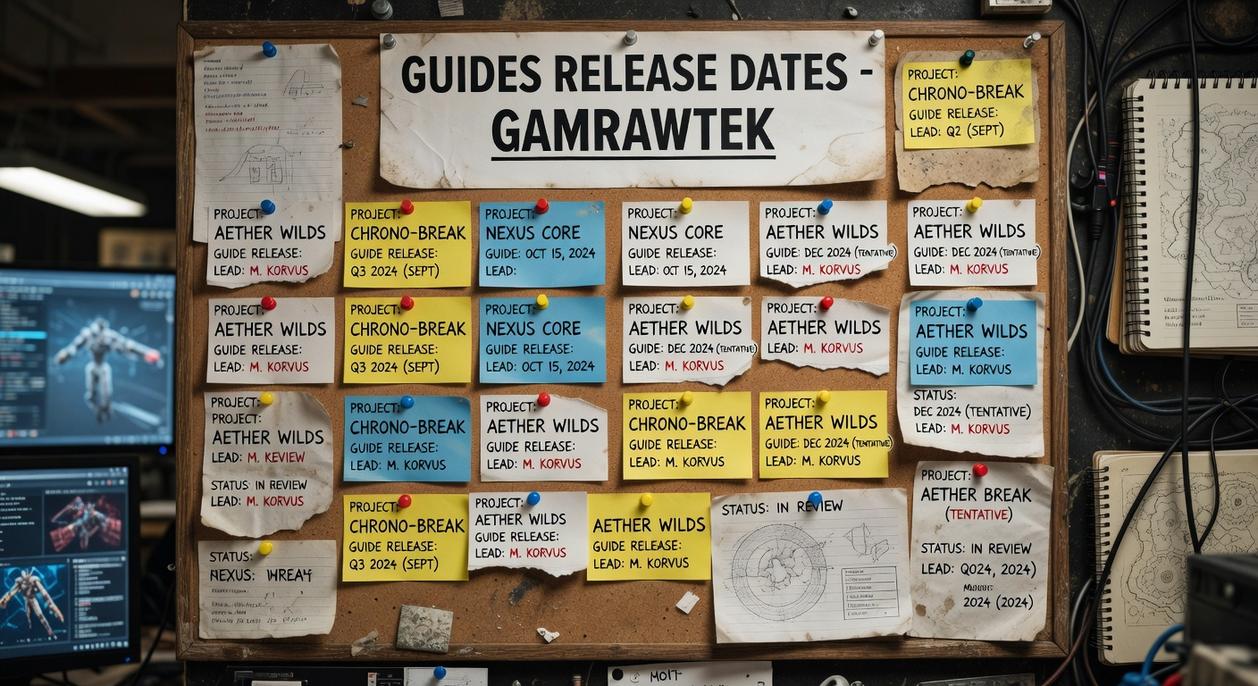 GUIDES RELEASE DATES -
GAMRAWTEK
PROJECT:
CHRONO-BREAK
GUIDE RELEASE:
LEAD: Q2 (SEPT)
PROJECT:
AETHER WILDS
GUIDE RELEASE:
LEAD: M. KORVUS
PROJECT:
CHRONO-BREAK
GUIDE RELEASE:
Q3 2024 (SEPT)
PROJECT:
NEXUS CORE
GUIDE: OCT 15, 2024
LEAD:
PROJECT:
NEXUS CORE
GUIDE RELEASE:
LEAD: OCT 15, 2024
PROJECT:
AETHER WILDS
GUIDE: DEC 2024 (TENTATIVE)
LEAD: M. KORVUS
PROJECT:
AETHER WILDS
GUIDE: DEC 2024 (TENTATIVE)
LEAD: M. KORVUS
PROJECT:
AETHER WILDS
GUIDE RELEASE:
LEAD: M. KORVUS
PROJECT:
CHRONO-BREAK
GUIDE RELEASE:
Q3 2024 (SEPT)
PROJECT:
NEXUS CORE
GUIDE RELEASE:
LEAD: OCT 15, 2024
PROJECT:
AETHER WILDS
GUIDE: DEC 2024 (TENTATIVE)
LEAD: M. KORVUS
PROJECT:
AETHER WILDS
LEAD: M. KORVUS
PROJECT:
AETHER WILDS
GUIDE RELEASE:
LEAD: M. KORVUS
STATUS:
DEC 2024 (TENTATIVE)
LEAD: M. KORVUS
PROJECT:
PROJECT:
AETHER WILDS
LEAD: M. KEVIEW
STATUS: IN REVIEW
LEAD: M. KORVUS
PROJECT:
CHRONO-BREAK
GUIDE RELEASE:
LEAD: M. KORVUS
PROJECT:
AETHER WILDS
GUIDE RELEASE:
LEAD: M. KORVUS
PROJECT:
CHRONO-BREAK
GUIDE RELEASE:
LEAD: M. KORVUS
PROJECT:
AETHER WILDS
GUIDE: DEC 2024 (TENTATIVE)
LEAD: M. KORVUS
PROJECT:
AETHER BREAK
(TENTATIVE)
STATUS: IN REVIEW
LEAD: Q024, 2024)
2024 (2024)
STATUS:
NEXUS:
PROJECT:
CHRONO-BREAK
GUIDE RELEASE:
Q3 2024 (SEPT)
PROJECT:
AETHER WILDS
GUIDE RELEASE:
LEAD: M. KORVUS
AETHER WILDS
GUIDE RELEASE:
LEAD: M. KORVUS
STATUS: IN REVIEW